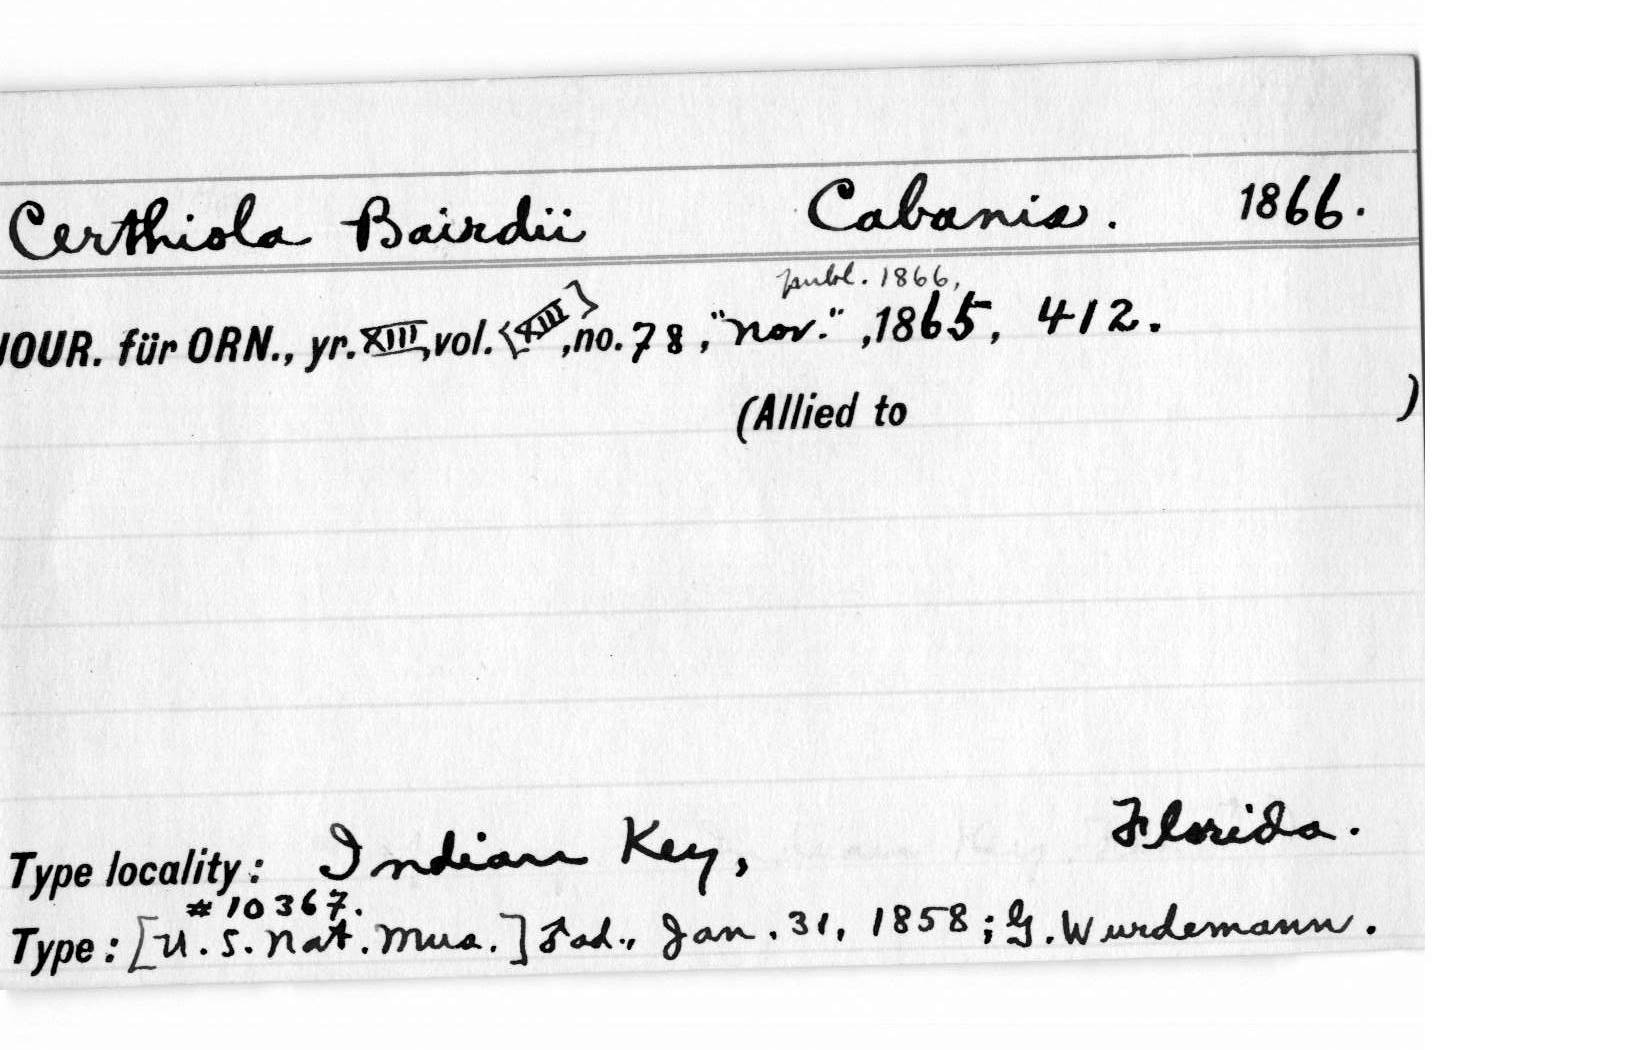 Certhiola Bairdii Cabanis. 1866.
publ. 1866,
JOUR. für ORN., yr. XIII, vol. <XIII>, no. 78, "nov.", 1865, 412.
(Allied to )
Type locality: Indian Key, Florida.
#10367.
Type: [U.S. Nat. Mus.] ad., Jan. 31, 1858; G. Wurdemann.